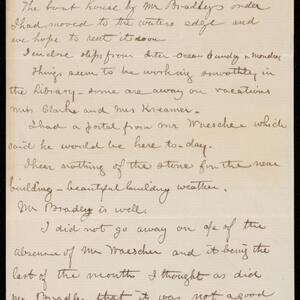 The boat house by Mr Bradleys order
I had moved to the waters edge and
we hope to rent it soon
I enclose slips from Inter Ocean Sunday & Monday
Things seem to be working smoothly in
the Library - some are away on vacations
Miss Clarke and Mrs Kreamer.
I had a postal from Mr Waescher which
said he would be here to-day.
I hear nothing of the stone for the new
building - beautiful building weather.
Mr Bradley is well.
I did not go away on a/c of the
absence of Mr Waescher and it being the
last of the month I thought as did
Mr Bradley that it was not a good